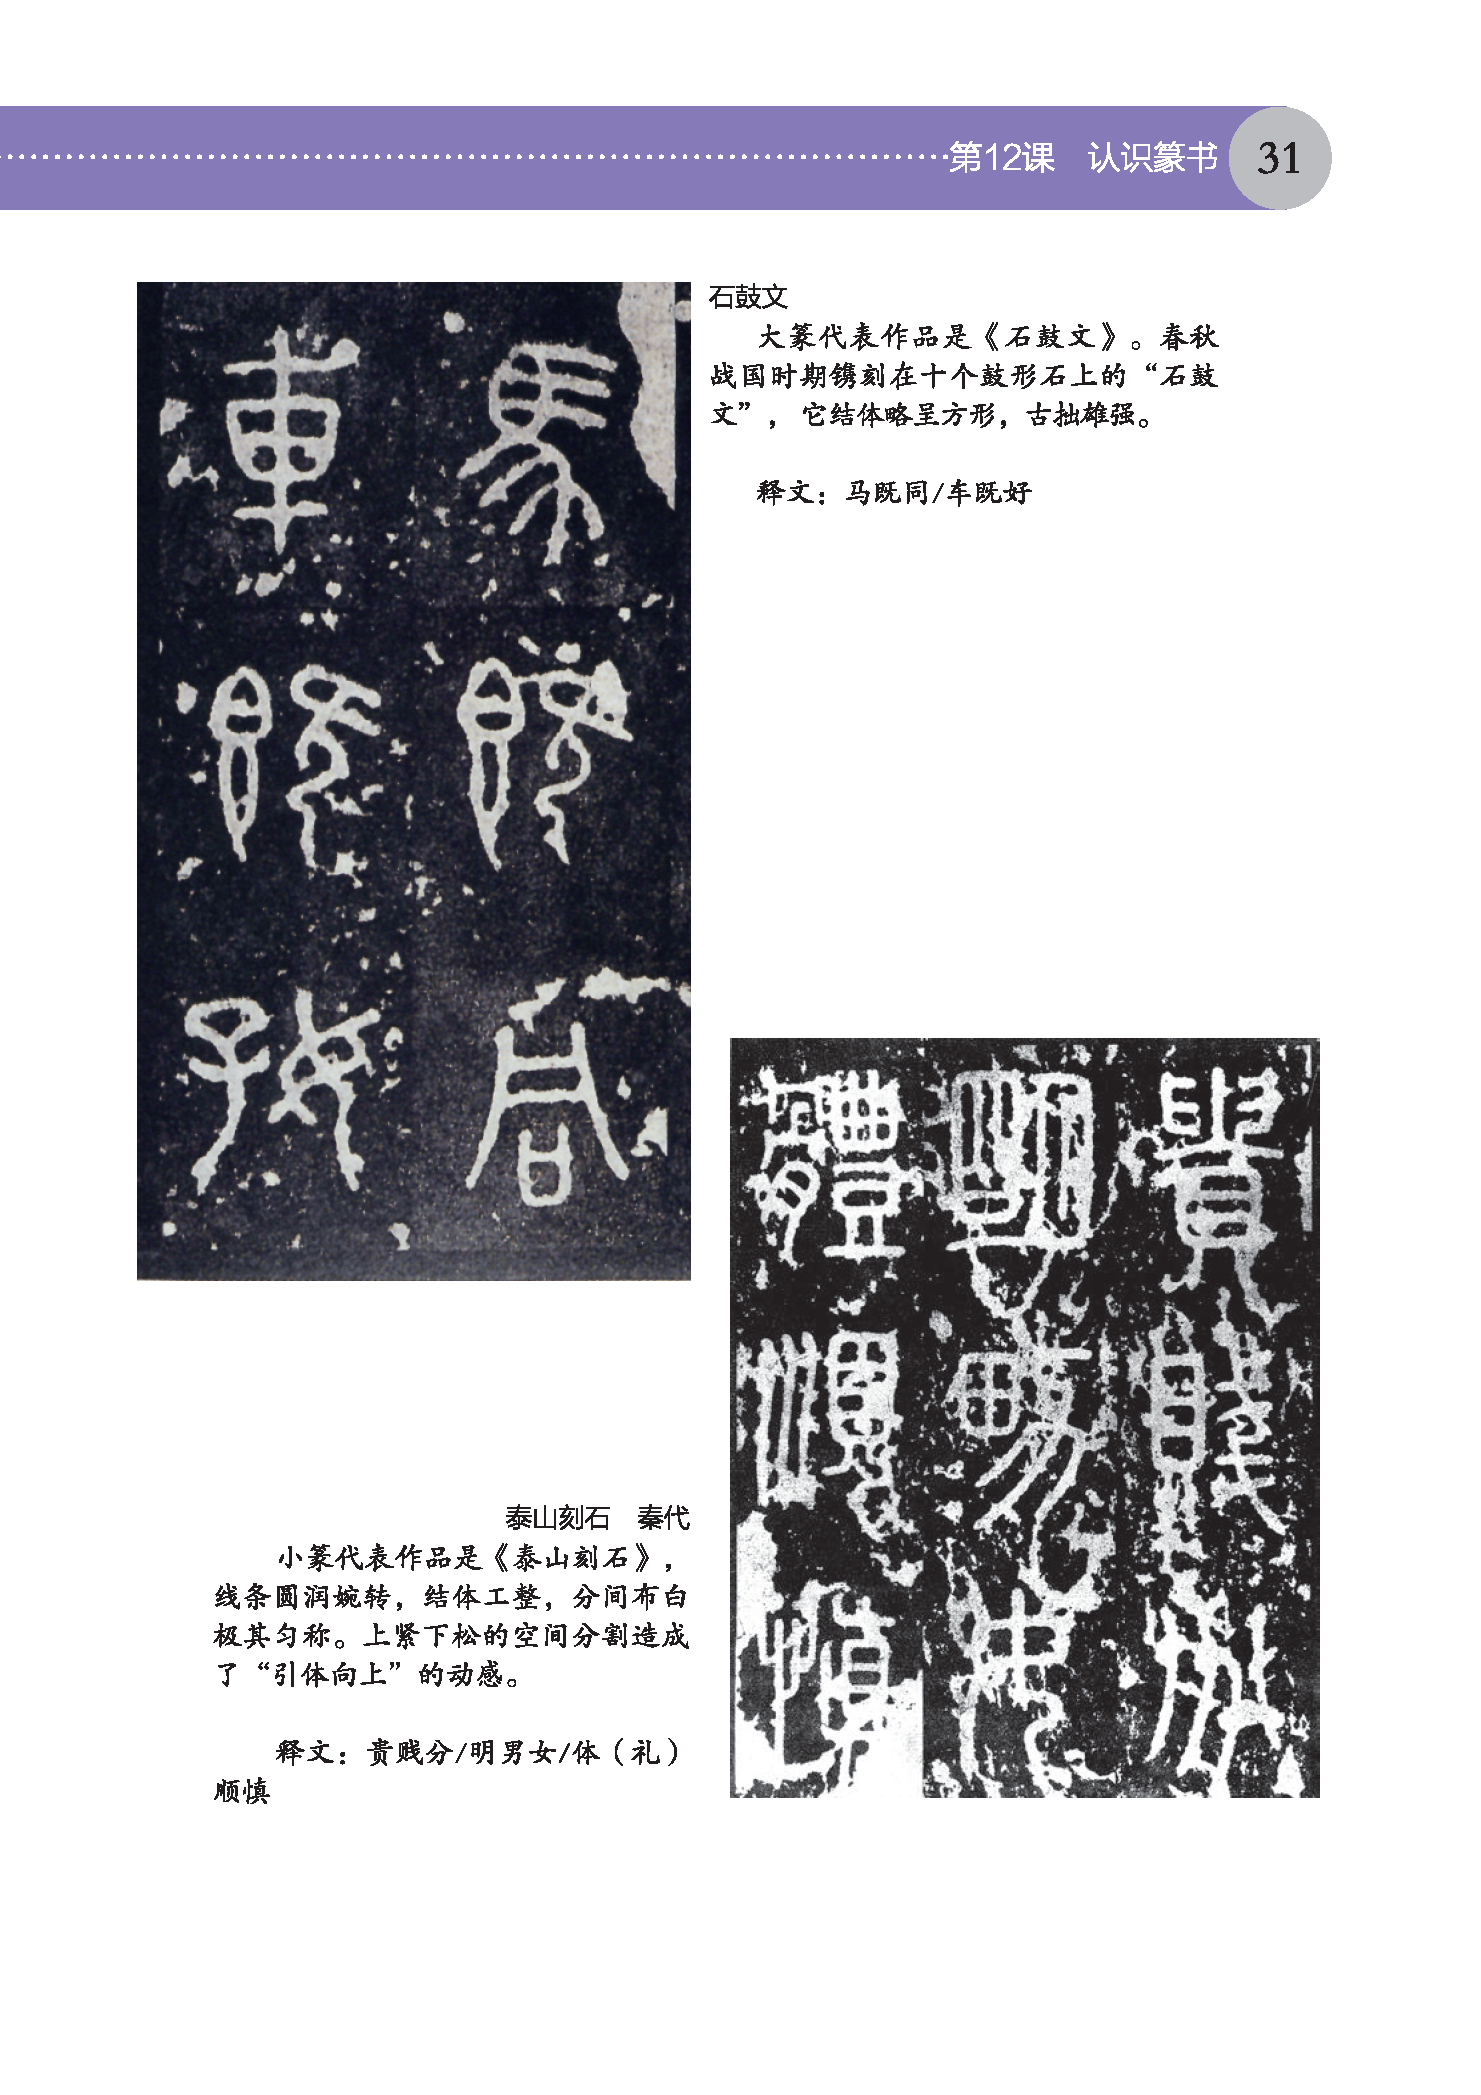 第12课　认识篆书 31
石鼓文
大篆代表作品是《石鼓文》。春秋
战国时期镌刻在十个鼓形石上的“石鼓
文”，它结体略呈方形，古拙雄强。
释文：马既同/车既好
馬既同
車既好
貴賤分
明男女
體順慎
泰山刻石　秦代
小篆代表作品是《泰山刻石》，
线条圆润婉转，结体工整，分间布白
极其匀称。上紧下松的空间分割造成
了“引体向上”的动感。
释文：贵贱分/明男女/体（礼）
顺慎